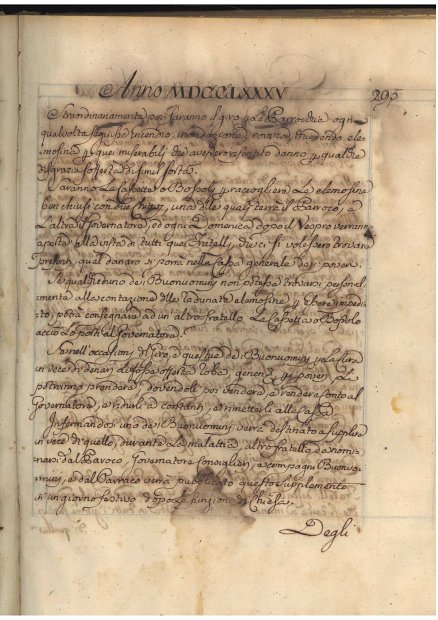 Anno MDCCLXXXV
295
Straordinariamente poi faranno il giro p la Parrochia ogni
qual volta seguisse incendio, inondazione, rovina, chiedendo ele-
mosine p quei miserabili che avessero sofferto danno p qualche
disgrazia sofferta di simil sorta.
Saranno le Cassette, o Bossoli p raccogliere le elemosine
ben chiusi con due chiavi, una delle quali terrà il Parroco, e
l'altra il Governatore, ed ogni Domenica dopo il Vespro verranno
aperte alla vista di tutti quei Fratelli, che ci si volessero trovare
presenti, qual danaro si porrà nella Cassa generale dei poveri.
Se qualcheduno dei Buonuomini non potesse trovarsi personal-
mente alla contazione delle adunate elemosine p essere impedi-
to, potrà consegnare ad un altro fratello la Cassetta, o Bossolo
acciò lo porti al Governatore.
Se nell'occasione di giro, o questue dei Buonuomini
in vece di denari gli fosse offerta roba, generi p i poveri, la
potranno prendere, dovendoli poi vendere, e rendere conto al
Governatore, e ridurli a contanti, e rimetterli alla Cassa.
Infermandosi uno dei Buonuomini verrà destinato a supplire
in vece di quello, durante la malattia, altro fratello da nomi-
narsi dal Parroco, Governatore Consiglieri, e compagni Buonuo-
mini, e dal Parroco verrà pubblicato questo supplemento
in un giorno festivo dopo le funzioni di Chiesa.
Degli